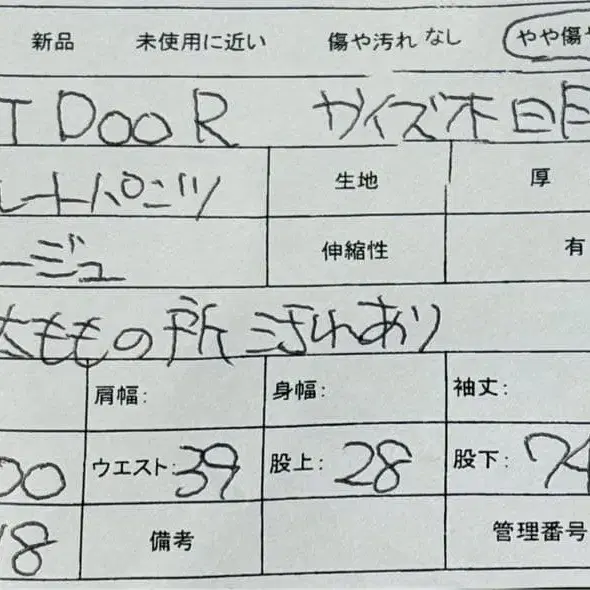 新品 未使用に近い 傷や汚れなし やや傷や
T DOOR サイズ不明
レートパンツ 生地 厚
ージュ 伸縮性 有
太ももの所 汚れあり
肩幅: 身幅: 袖丈:
00 ウエスト:39 股上:28 股下:74
18 備考 管理番号